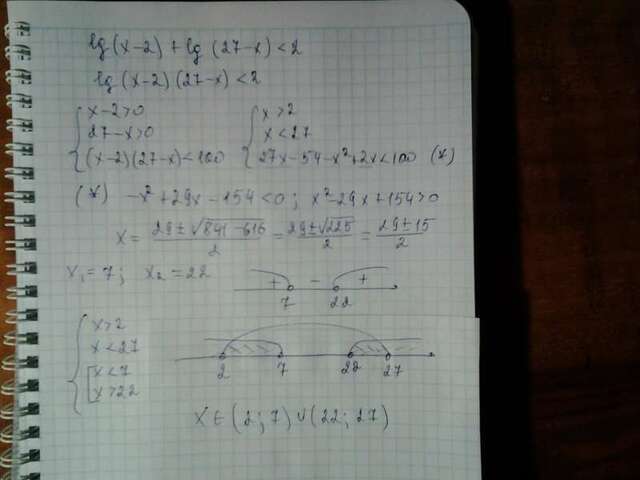 lg(x-2) + lg(27-x) < 2
lg(x-2)(27-x) < 2
{ x-2>0
27-x>0
(x-2)(27-x)<100
{ x>2
x<27
27x-54-x²+2x<100 (*)
(*) -x²+29x-154<0; x²-29x+154>0
x = (29±√(841-616))/2 = (29±√225)/2 = (29±15)/2
x₁=7; x₂=22
+ - +
7 22
{ x>2
x<27
[ x<7
x>22
2 7 22 27
x ∈ (2; 7) ∪ (22; 27)